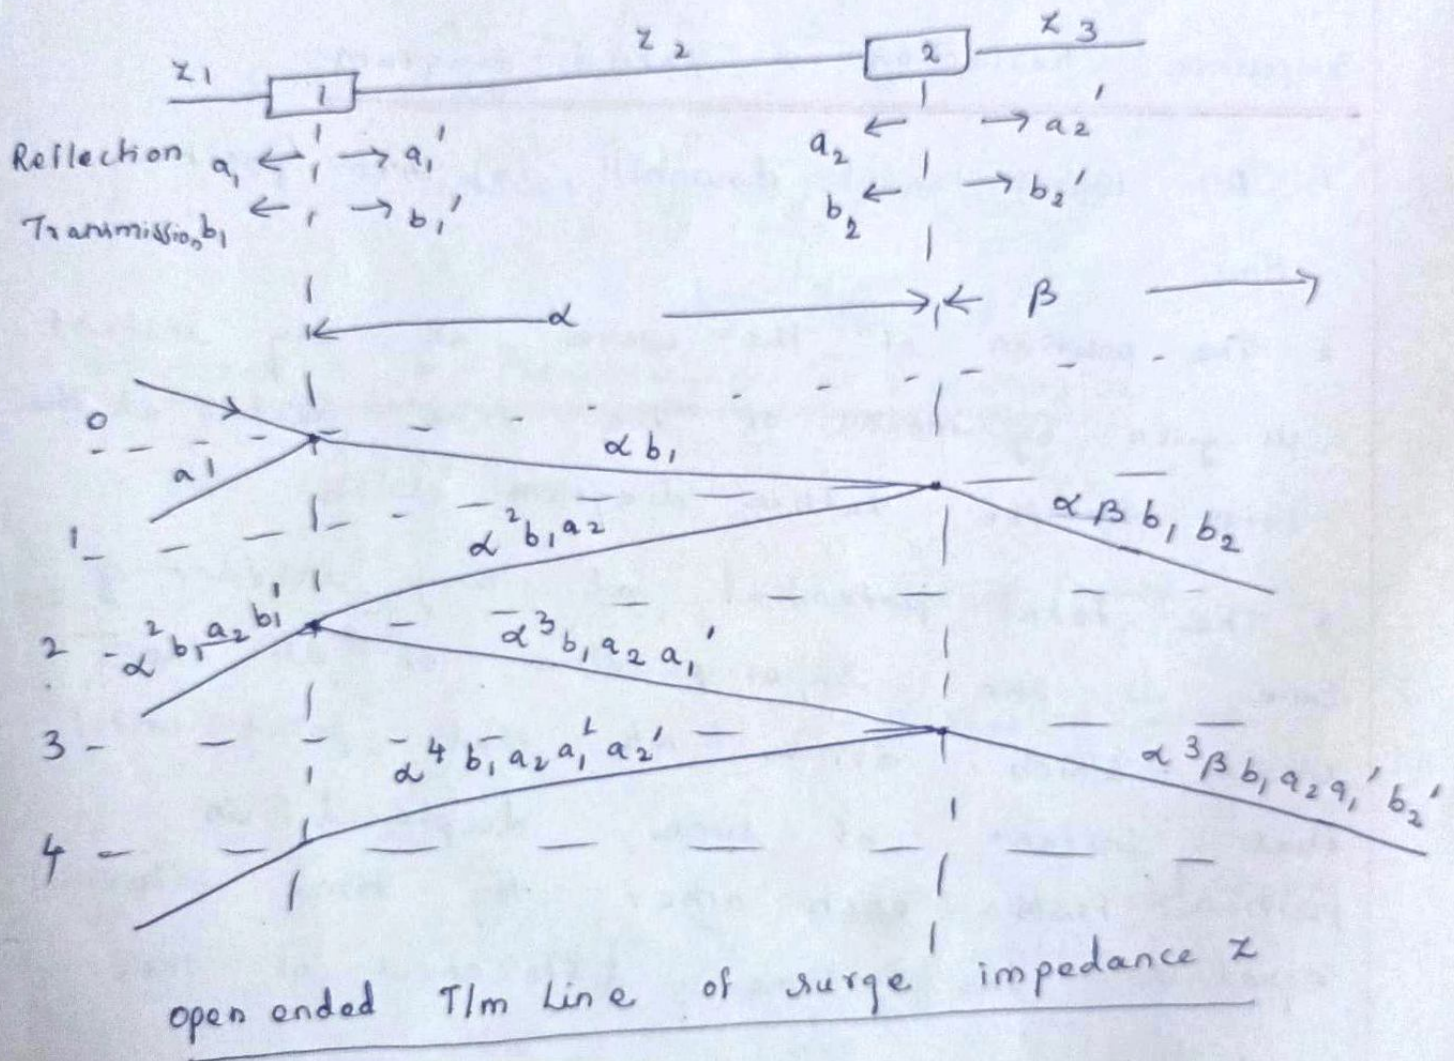 Z1 1 Z2 2 Z3
Reflection a1 ← → a1' a2 ← → a2'
Transmission b1 ← → b1' b2 ← → b2'
α β
0
αb1
a1
αβb1b2
1
α²b1a2
2
α²b1a2b1'
α³b1a2a1'
3
α⁴b1a2a1'a2'
α³βb1a2a1'b2'
4
open ended T/m Line of surge impedance Z